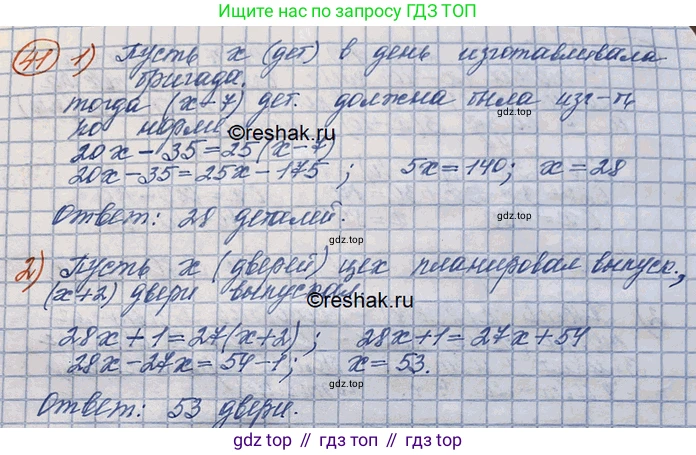 Ищите нас по запросу ГДЗ ТОП
41 1) Пусть x (дет) в день изготавливала
бригада.
тогда (x-7) дет. должна была изг-ть
по норме
©reshak.ru
20x - 35 = 25(x-7)
20x - 35 = 25x - 175 ; 5x = 140; x = 28
gdz top
Ответ: 28 деталей.
gdz top
2) Пусть x (дверей) цех планировал выпуск.,
(x+2) двери выпускал
©reshak.ru
28x + 1 = 27(x+2); 28x+1 = 27x + 54
28x - 27x = 54 - 1; x = 53.
gdz top
Ответ: 53 двери.
gdz top
gdz top // гдз топ // gdz.top